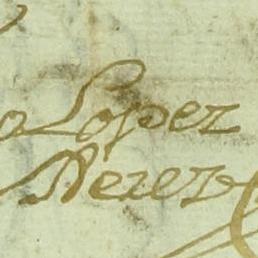 o Lopez
Nerez